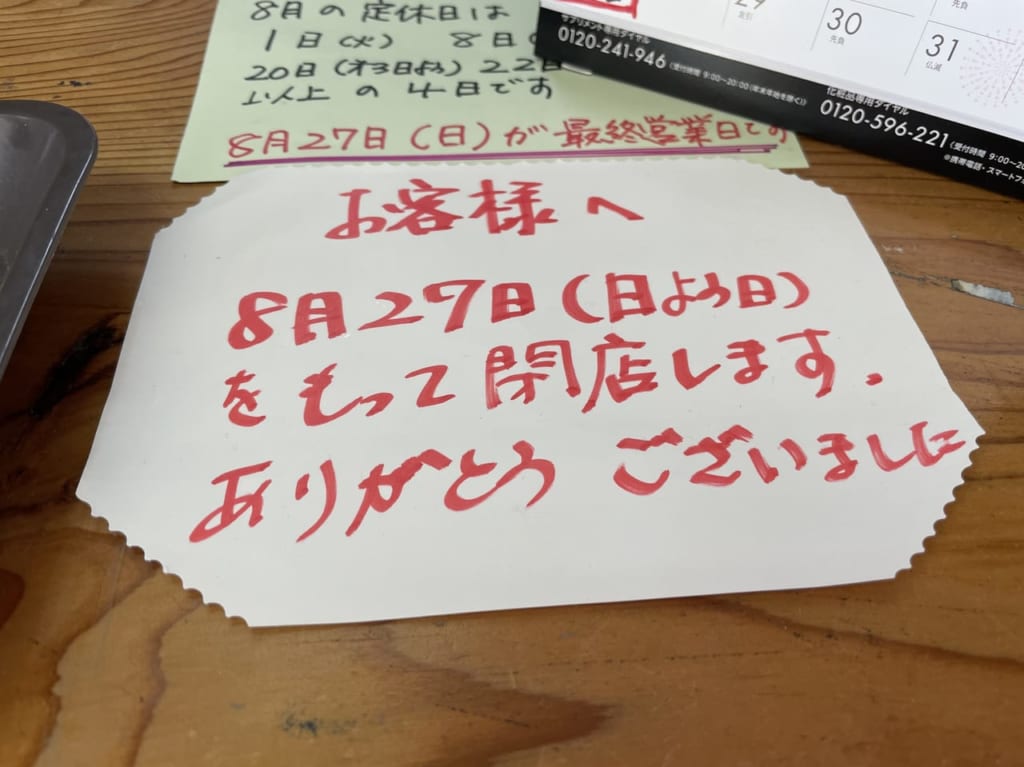 8月の定休日は
1日(火) 8日
20日(オヨ日よう) 22日
以上の4日です
8月27日(日)が最終営業日です
お客様へ
8月27日(日よう日)
をもって閉店します.
ありがとうございました
29
友引
30
先負
先負
31
仏滅
サプリメント専用ダイヤル
0120-241-946 (受付時間 9:00~20:00(年末年始を除く))
化粧品専用ダイヤル
0120-596-221 (受付時間 9:00~20
※携帯電話・スマートフォ